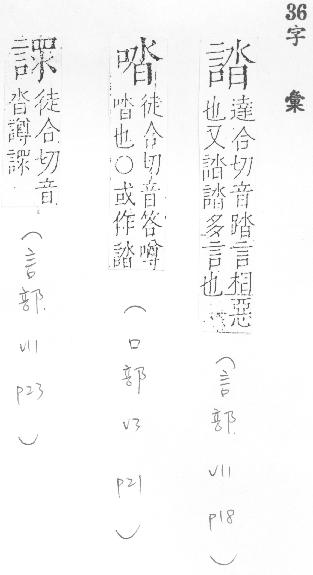 36 字彙
䜚 達合切音踏言相惡
也又䜚䜚多言也
(言部 v11 p18)
喒 徒合切音沓噂
喒也○或作䜚
(口部 v3 p21)
譅 徒合切音
沓譐譅
(言部 v11 p23)